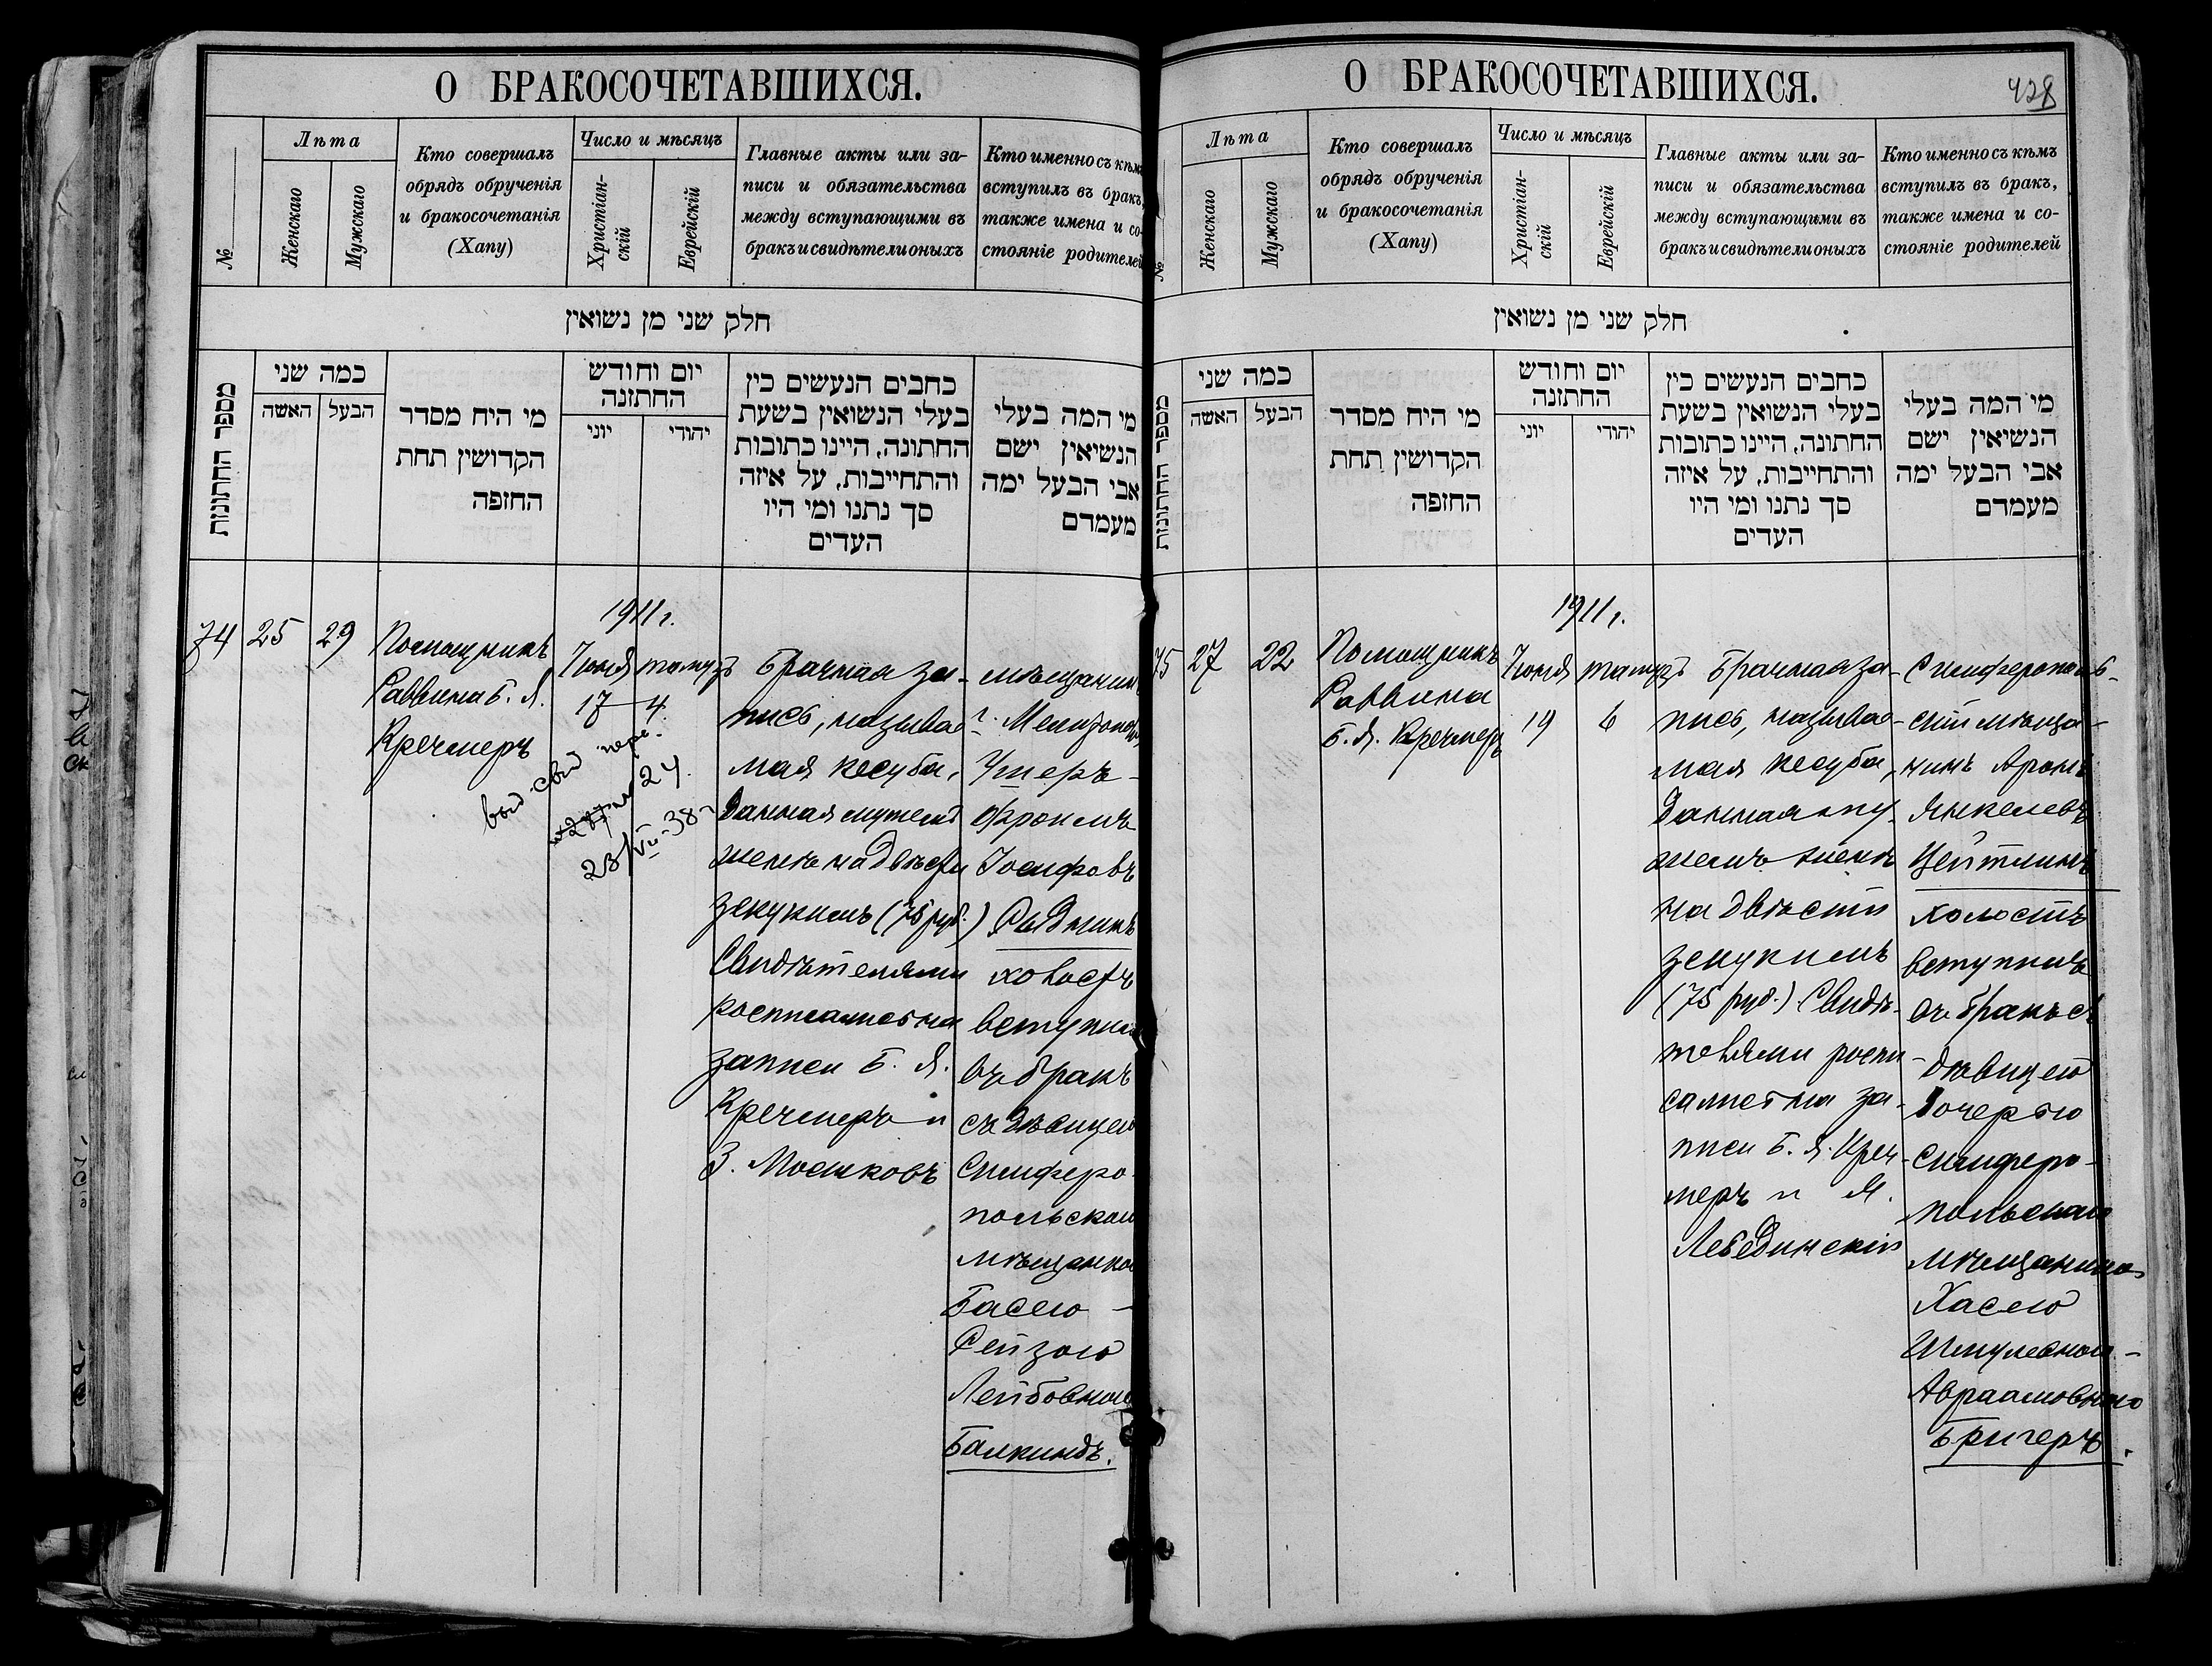 О БРАКОСОЧЕТАВШИХСЯ.
№
Лѣта
Женскаго
Мужскаго
Кто совершалъ
обрядъ обрученія
и бракосочетанія
(Хапу)
Число и мѣсяцъ
Христіан-
скій
Еврейскій
Главные акты или за-
писи и обязательства
между вступающими въ
бракъ и свидѣтели оныхъ
Кто именно съ кѣмъ
вступилъ въ бракъ,
также имена и со-
стояніе родителей
חלק שני מן נשואין
מספר החתונות
כמה שני
האשה
הבעל
מי היח מסדר
הקדושין תחת
החזפה
יום וחודש
החתזנה
יוני
יהודי
כחבים הנעשים כין
בעלי הנשואין בשעת
החתונה, היינו כתובות
והתחייבות, על איזה
סך נתנו ומי היו
העדים
מי המה בעלי
הנשיאין ישם
אבי הבעל ימה
מעמדם
74
25
29
Помощникъ
Раввина Б. Я.
Кречмеръ
1911 г.
Іюня тамузъ
17 4.
выд. свид
24
23/VII-38 г
Брачная за-
пись, называе-
мая кесуба,
данная мужемъ
женѣ на двѣсти
зекукимъ (75 руб.)
Свидѣтелями
росписались на
записи Б. Я.
Кречмеръ и
З. Мошковъ
мѣщанинъ
г. Мелитополя
Ушеръ-
Фроимъ
Іосифовъ
Рыдникъ
холостъ
вступилъ
въ бракъ
съ дѣвицею
Симферо-
польскою
мѣщанкою
Басею-
Рейзою
Лейбовною
Балкиндъ.
О БРАКОСОЧЕТАВШИХСЯ.
428
№
Лѣта
Женскаго
Мужскаго
Кто совершалъ
обрядъ обрученія
и бракосочетанія
(Хапу)
Число и мѣсяцъ
Христіан-
скій
Еврейскій
Главные акты или за-
писи и обязательства
между вступающими въ
бракъ и свидѣтели оныхъ
Кто именно съ кѣмъ
вступилъ въ бракъ,
также имена и со-
стояніе родителей
חלק שני מן נשואין
מספר החתונות
כמה שני
האשה
הבעל
מי היח מסדר
הקדושין תחת
החזפה
יום וחודש
החתזנה
יוני
יהודי
כחבים הנעשים כין
בעלי הנשואין בשעת
החתונה, היינו כתובות
והתחייבות, על איזה
סך נתנו ומי היו
העדים
מי המה בעלי
הנשיאין ישם
אבי הבעל ימה
מעמדם
75
27
22
Помощникъ
Раввина
Б. Я. Кречмеръ
1911 г.
Іюня тамузъ
19 6
Брачная за-
пись, называе-
мая кесуба,
данная му-
жемъ женѣ
на двѣсти
зекукимъ
(75 руб.). Свидѣ-
телями роспи-
сались на за-
писи Б. Я. Креч-
меръ и М.
Лебединскій
Симферополь-
скій мѣща-
нинъ Аронъ
Янкелевъ
Цейтлинъ
холостъ
вступилъ
въ бракъ съ
дѣвицею
дочерью
Симферо-
польскаго
мѣщанина
Хасею
Шмулевною-
Авраамовною
Бригеръ.